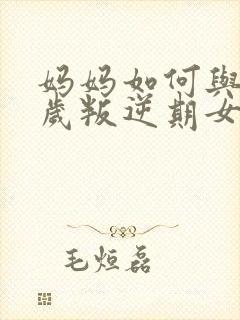 妈妈如何與
歲叛逆期女
毛烜磊